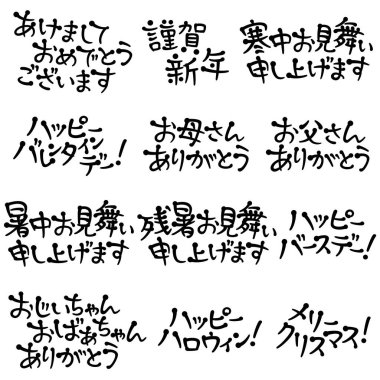 あけまして
おめでとう
ございます
謹賀
新年
寒中お見舞い
申し上げます
ハッピー
バレンタイン
デー!
お母さん
ありがとう
お父さん
ありがとう
暑中お見舞い
申し上げます
残暑お見舞い
申し上げます
ハッピー
バースデー!
おじいちゃん
おばあちゃん
ありがとう
ハッピー
ハロウィン!
メリー
クリスマス!